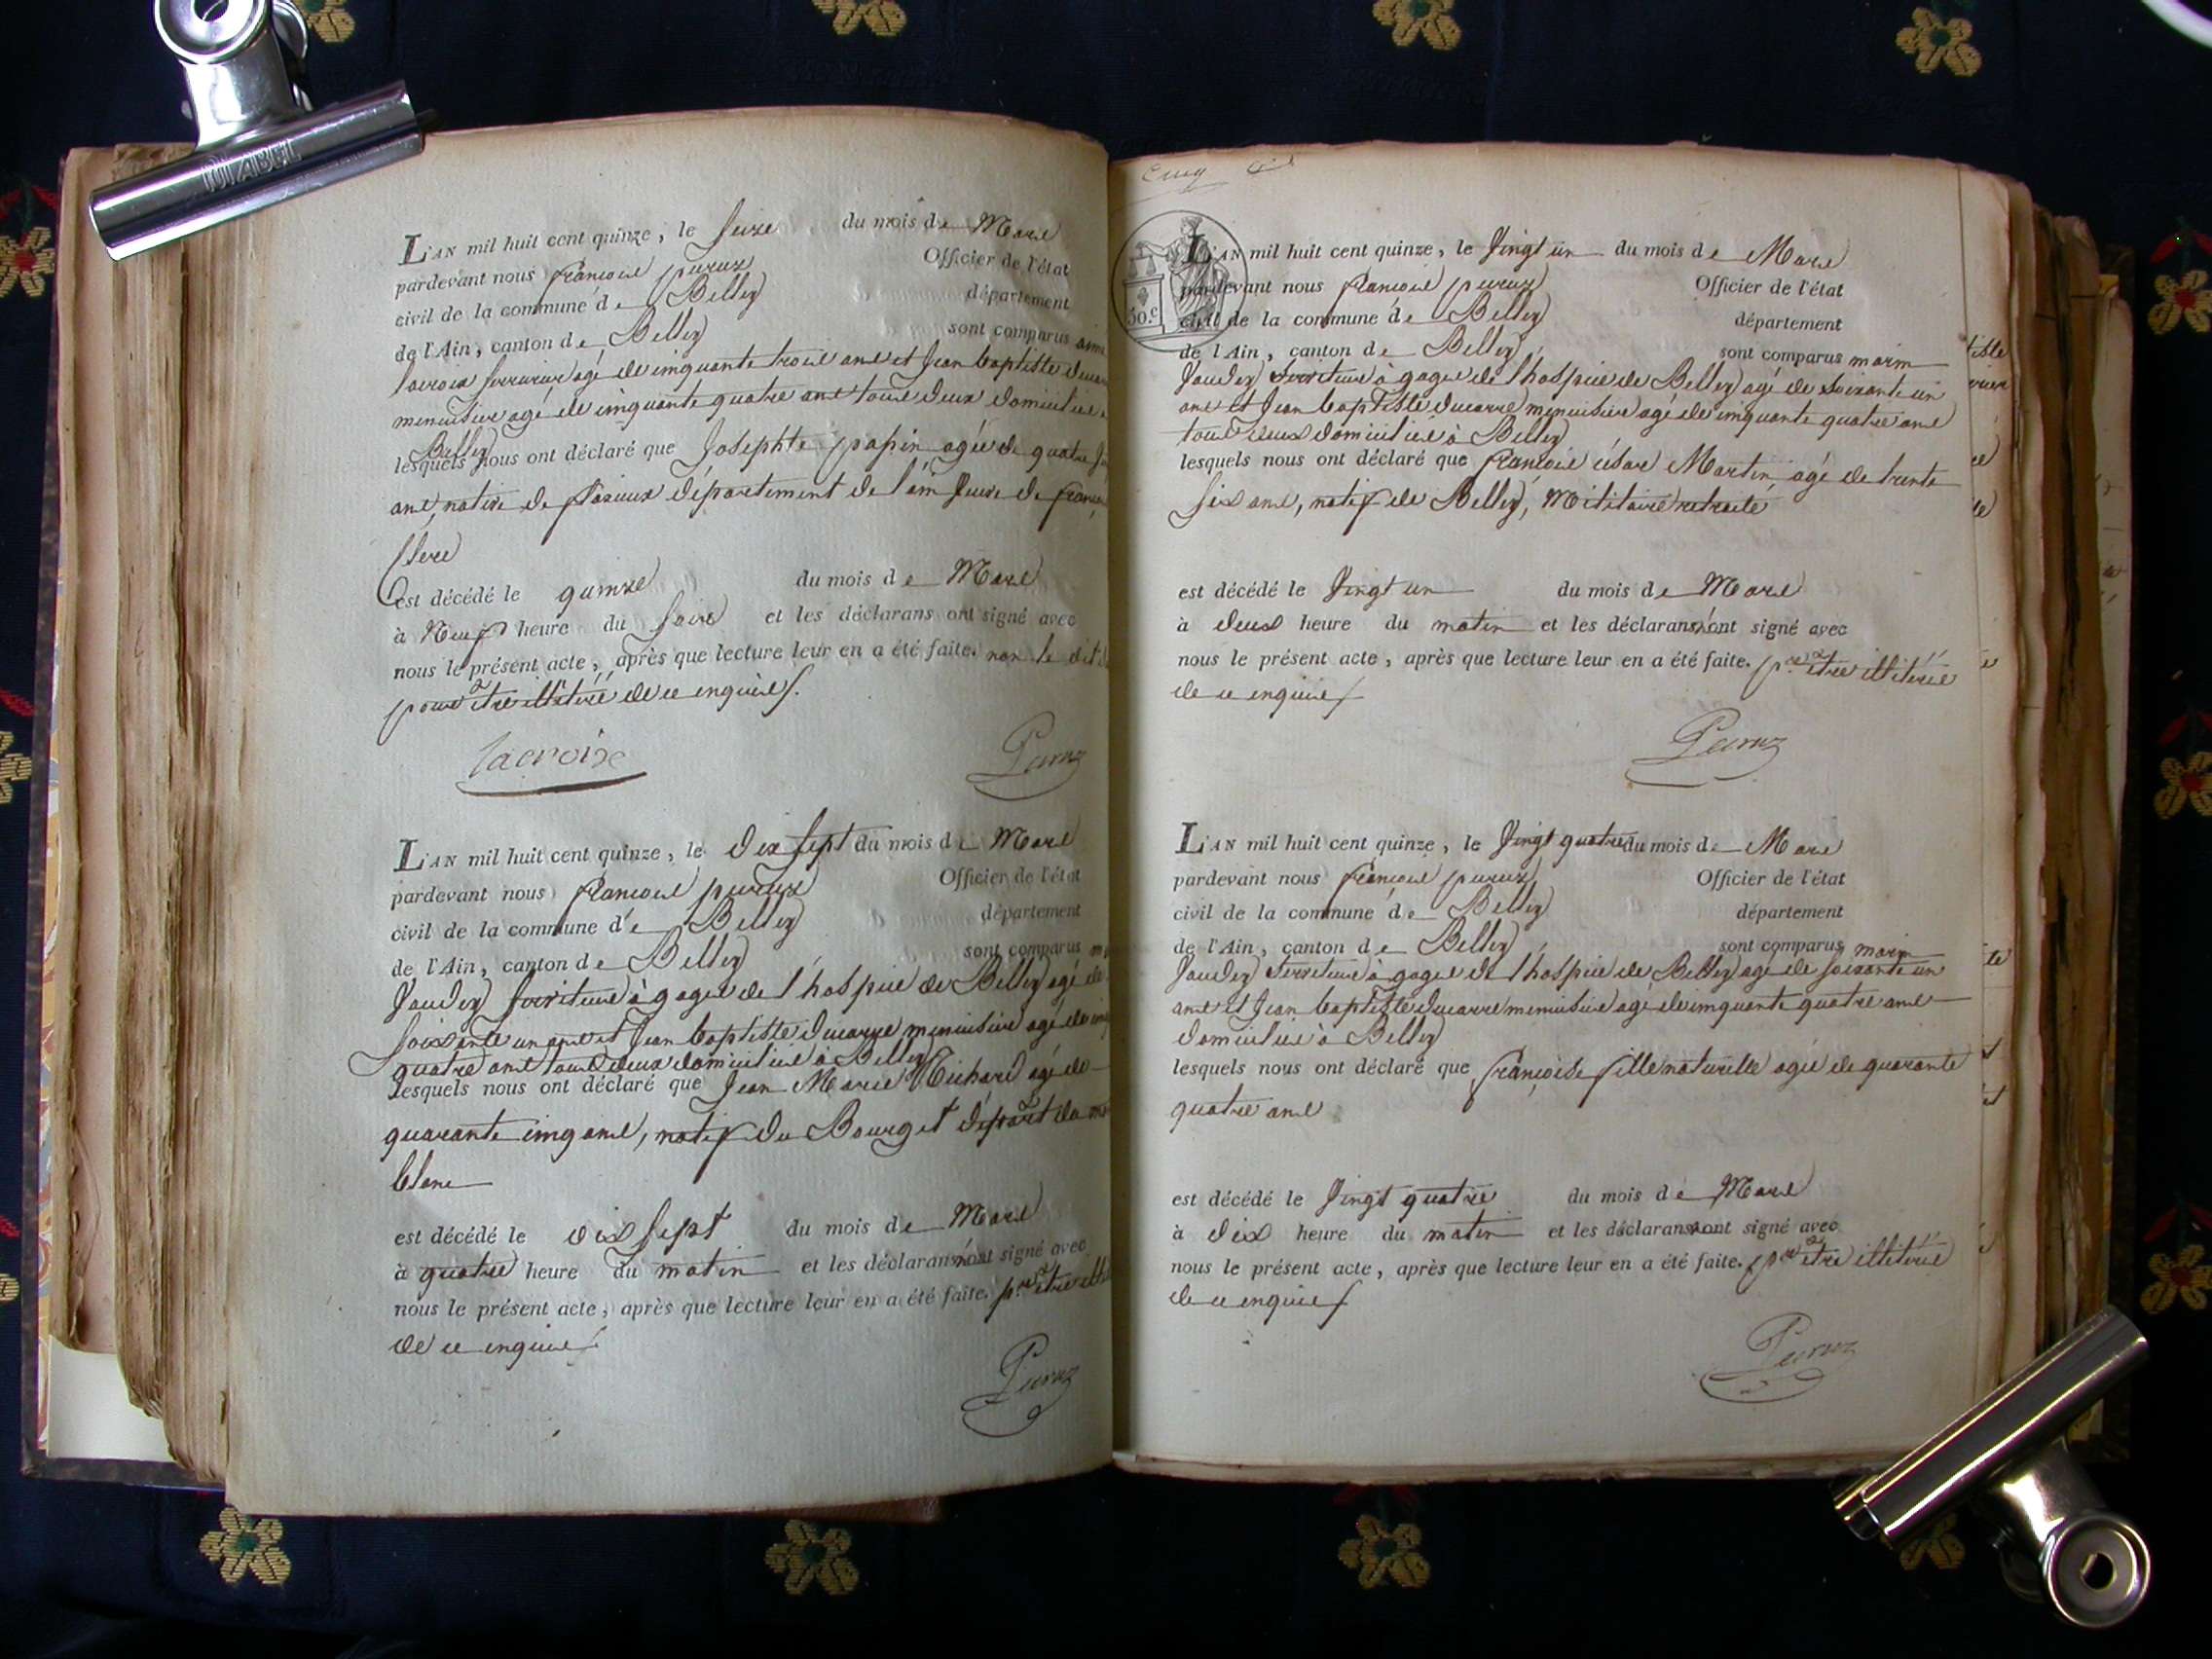 DIABEL
L'AN mil huit cent quinze, le seize du mois de Mars
pardevant nous françois peruz Officier de l'état
civil de la commune de Belley département
de l'Ain, canton de Belley sont comparus
lacroix serrurier agé de cinquante trois ans et Jean baptiste
menuisier agé de cinquante quatre ans tous deux domiciliés
Belley
lesquels nous ont déclaré que Josephte papin agée de quatre
ans, native de département de l'ain veuve de
est décédé le quinze du mois de Mars
à Neuf heure du soir et les déclarans ont signé avec
nous le présent acte, après que lecture leur en a été faite. non le dit
pour être illitéré de ce enquis
Lacroix Peruz
L'AN mil huit cent quinze, le dix sept du mois de Mars
pardevant nous françois peruz Officier de l'état
civil de la commune de Belley département
de l'Ain, canton de Belley sont comparus
Jauday serviteur à gages de l'hospice de Belley agé de
soixante un ans et Jean baptiste ducarre menuisier agé de
quatre ans tous deux domiciliés à Belley
lesquels nous ont déclaré que Jean Marie Michard agé de
quarante cinq ans, natif du Bourget départ du
blanc
est décédé le dix sept du mois de Mars
à quatre heure du matin et les déclarans n'ont signé avec
nous le présent acte, après que lecture leur en a été faite. pr être
de ce enquis
Peruz
50.c
L'AN mil huit cent quinze, le vingt un du mois de Mars
pardevant nous françois peruz Officier de l'état
civil de la commune de Belley département
de l'Ain, canton de Belley sont comparus marin
Jauday serviteur à gages de l'hospice de Belley agé de soixante un
ans et Jean baptiste ducarre menuisier agé de cinquante quatre ans
tous deux domiciliés à Belley
lesquels nous ont déclaré que françois césar Martin, agé de trente
six ans, natif de Belley, Militaire retraité
est décédé le vingt un du mois de Mars
à deux heure du matin et les déclarans n'ont signé avec
nous le présent acte, après que lecture leur en a été faite. pr être illitérés
de ce enquis
Peruz
L'AN mil huit cent quinze, le vingt quatre du mois de Mars
pardevant nous françois peruz Officier de l'état
civil de la commune de Belley département
de l'Ain, canton de Belley sont comparus marin
Jauday serviteur à gages de l'hospice de Belley agé de soixante un
ans et Jean baptiste ducarre menuisier agé de cinquante quatre ans
domiciliés à Belley
lesquels nous ont déclaré que françoise fille naturelle agée de quarante
quatre ans
est décédé le vingt quatre du mois de Mars
à dix heure du matin et les déclarans n'ont signé avec
nous le présent acte, après que lecture leur en a été faite. pr être illitérés
de ce enquis
Peruz